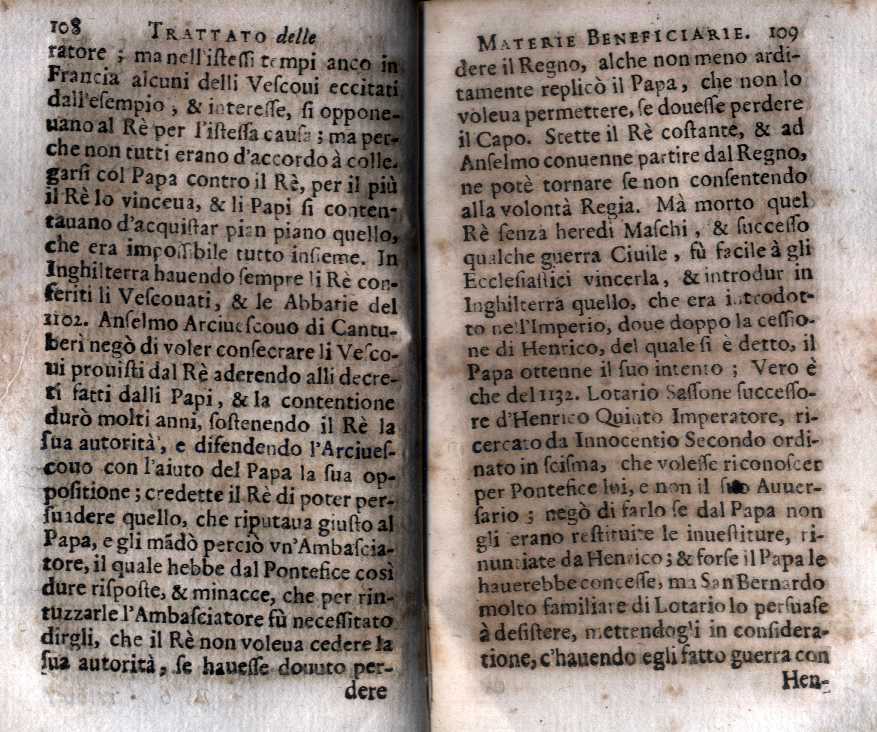 108 TRATTATO delle
ratore ; ma nell'iſteſſi tempi anco in
Francia alcuni delli Veſcoui eccitati
dall'eſempio , & intereſſe, ſi oppone-
uano al Rè per l'iſteſſa cauſa ; ma per-
che non tutti erano d'accordo à colle-
garſi col Papa contro il Rè, per il più
il Rè lo vinceua, & li Papi ſi conten-
tauano d'acquiſtar pian piano quello,
che era impoſſibile tutto inſieme. In
Inghilterra hauendo ſempre li Rè con-
feriti li Veſcouati, & le Abbatie del
1102. Anſelmo Arciueſcouo di Cantu-
beri negò di voler conſecrare li Veſco-
ui prouiſti dal Rè aderendo alli decre-
ti fatti dalli Papi, & la contentione
durò molti anni, ſoſtenendo il Rè la
ſua autorità, e difendendo l'Arciueſ-
couo con l'aiuto del Papa la ſua op-
poſitione ; credette il Rè di poter per-
ſuadere quello, che riputaua giuſto al
Papa, e gli mãdò perciò vn'Ambaſcia-
tore, il quale hebbe dal Pontefice così
dure riſpoſte, & minacce, che per rin-
tuzzarle l'Ambaſciatore fù neceſſitato
dirgli, che il Rè non voleua cedere la
ſua autorità, ſe haueſſe douuto per-
dere
MATERIE BENEFICIARIE. 109
dere il Regno, alche non meno ardi-
tamente replicò il Papa, che non lo
voleua permettere, ſe doueſſe perdere
il Capo. Stette il Rè coſtante, & ad
Anſelmo conuenne partire dal Regno,
ne potè tornare ſe non conſentendo
alla volontà Regia. Mà morto quel
Rè ſenza heredi Maſchi, & ſucceſſo
qualche guerra Ciuile, fù facile à gli
Eccleſiaſtici vincerla, & introdur in
Inghilterra quello, che era introdot-
to nell'Imperio, doue doppo la ceſſio-
ne di Henrico, del quale ſi è detto, il
Papa ottenne il ſuo intento ; Vero è
che del 1132. Lotario Saſſone ſucceſſo-
re d'Henrico Quinto Imperatore, ri-
cercato da Innocentio Secondo ordi-
nato in ſciſma, che voleſſe riconoſcer
per Pontefice lui, e non il ſuo Auuer-
ſario ; negò di farlo ſe dal Papa non
gli erano reſtituite le inueſtiture, ri-
nuntiate da Henrico ; & forſe il Papa le
hauerebbe conceſſe, ma San Bernardo
molto familiare di Lotario lo perſuaſe
à deſiſtere, mettendogli in conſidera-
tione, c'hauendo egli fatto guerra con
Hen-